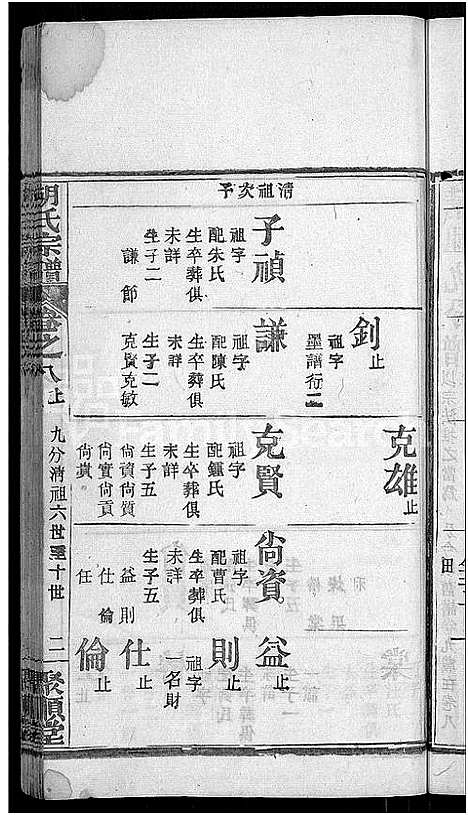 清祖次子
子禎
祖字
配朱氏
生卒葬俱
未詳
生子二
謙 節
釗止
祖字
墨譜行二
謙
祖字
配陳氏
生卒葬俱
未詳
生子二
克賢克敏
克雄止
克賢
祖字
配鍾氏
生卒葬俱
未詳
生子五
尙資尙質
尙實尙貢
尙賁
尙資
祖字
配曹氏
生卒葬俱
未詳
生子五
益 則
仕 倫
任
益止
則止
祖字
一名財
仕止
倫止
胡氏宗譜
卷之八上
九分清祖六世至十世
二
聚順堂